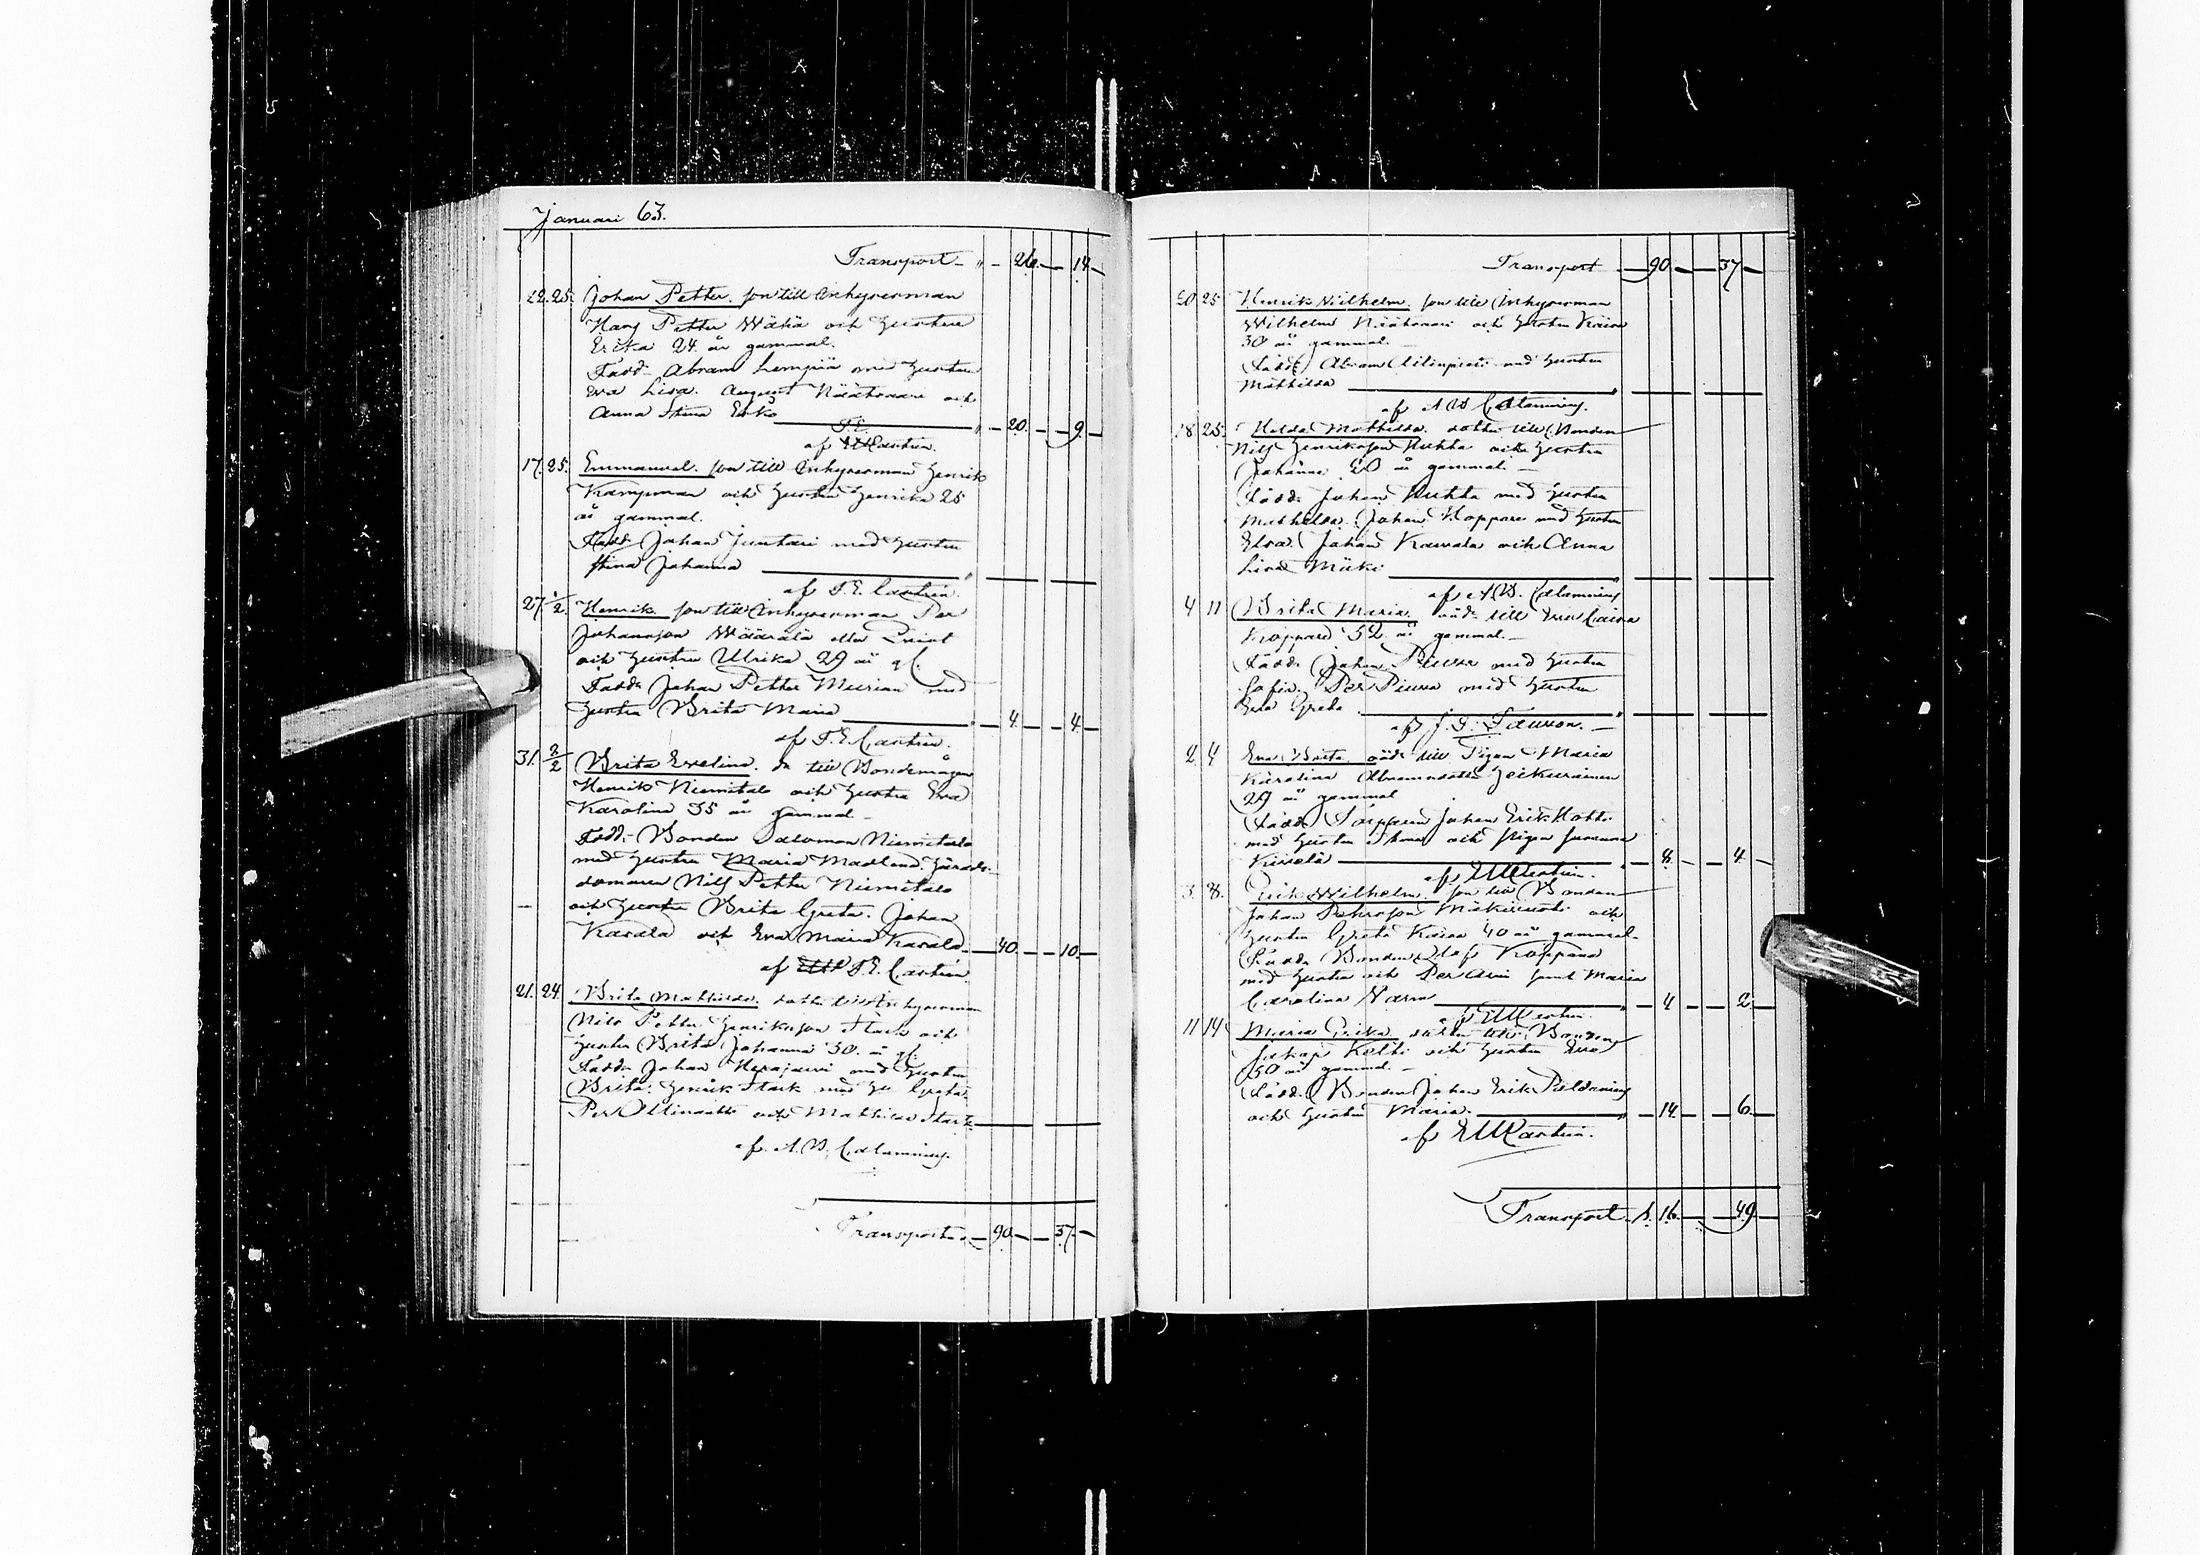 Januari 63.
Transport — " — 26 — — 14 —
22. 25. Johan Petter. son till Inhysesman
Hans Petter Wähä och hustru
Erika 24 år gammal.
Fadd. Abram Lempiä med hustru
Eva Lisa. August Näätsaari och
Anna Stina Erkö " — 20. — — 9. —
T.E.
af Castrén.
17. 25. Emmanuel. son till Inhysesman Henrik
Kampman och hustru Henrika 25
år gammal.
Fadd. Johan Juntari med hustru
Stina Johanna
af T. E. Castrén.
27. 1/2. Henrik son till Inhysesman Per
Johansson Wäärälä eller
och hustru Ulrika 29 år gl.
Fadd. Johan Petter Meerian med
hustru Brita Maria " — 4. — — 4. —
af T. E. Castrén.
31. 2/2 Brita Evelina. dr till Bondemågen
Henrik Niemitalo och hustru Eva
Karolina 35 år gammal —
Fadd. Bonden Salomon Niemitalo
med hustru Maria Madlena. Härads-
domaren Nils Petter Niemitalo
och hustru Brita Greta. Johan
Karala och Eva Maria Karala. — 40. — — 10. —
af T. E. Castrén
21. 24. Brita Mathilda. dotter till Inhysesman
Nils Petter Henriksson Stark och
hustru Brita Johanna 30. år gl.
Fadd. Johan Herajärvi med hustru
Brita. Henrik Stark med hu Greta.
Per och Mathilda Stark
af A. W. Calamnius.
Transport — 90. — — 37. —
Transport — 90. — — 37 —
20 25 Henrik Wilhelm. son till Inhysesman
Wilhelm Näätsaari och hustru Kaisa
30 år gammal. —
Fadd. Abram med hustru
Mathilda "
af A W Calamnius.
18 25. Hilda Mathilda. dotter till Bonden
Nils Henriksson Huhta och hustru
Johanna 20 år gammal. —
Fadd. Johan Huhta med hustru
Mathilda. Johan Koppare med hustru
Elsa. Johan Kaurala och Anna
Lisa Mäki "
af A. W. Calamnius
4 11 Brita Maria. oäk. till Eva Caisa
32 år gammal. —
Fadd. Johan med hustru
Sofia. Per med hustru
Eva Greta "
af J. F. —
2 4 Eva Brita oäk till Pigan Maria
Karolina Abramsdotter
29 år gammal
Fadd. Torparen Johan Erik
med hustru Anna och pigan Susanna
— 8. — — 4. —
af Castrén.
3 8. Erik Wilhelm. son till Bonden
Johan Pehrsson och
hustru Greta Kaisa 40 år gammal.
Fadd. Bonden Olof
med hustru och Per samt Maria
Carolina — 4 — — 2. —
af Castrén.
11 14 Maria Erika. dotter till Bonden
Jakop och hustru Eva
30 år gammal. —
Fadd. Bonden Johan Erik
och hustru Maria. " — 14. — — 6. —
af Castrén.
Transport 1. 16. — — 49. —